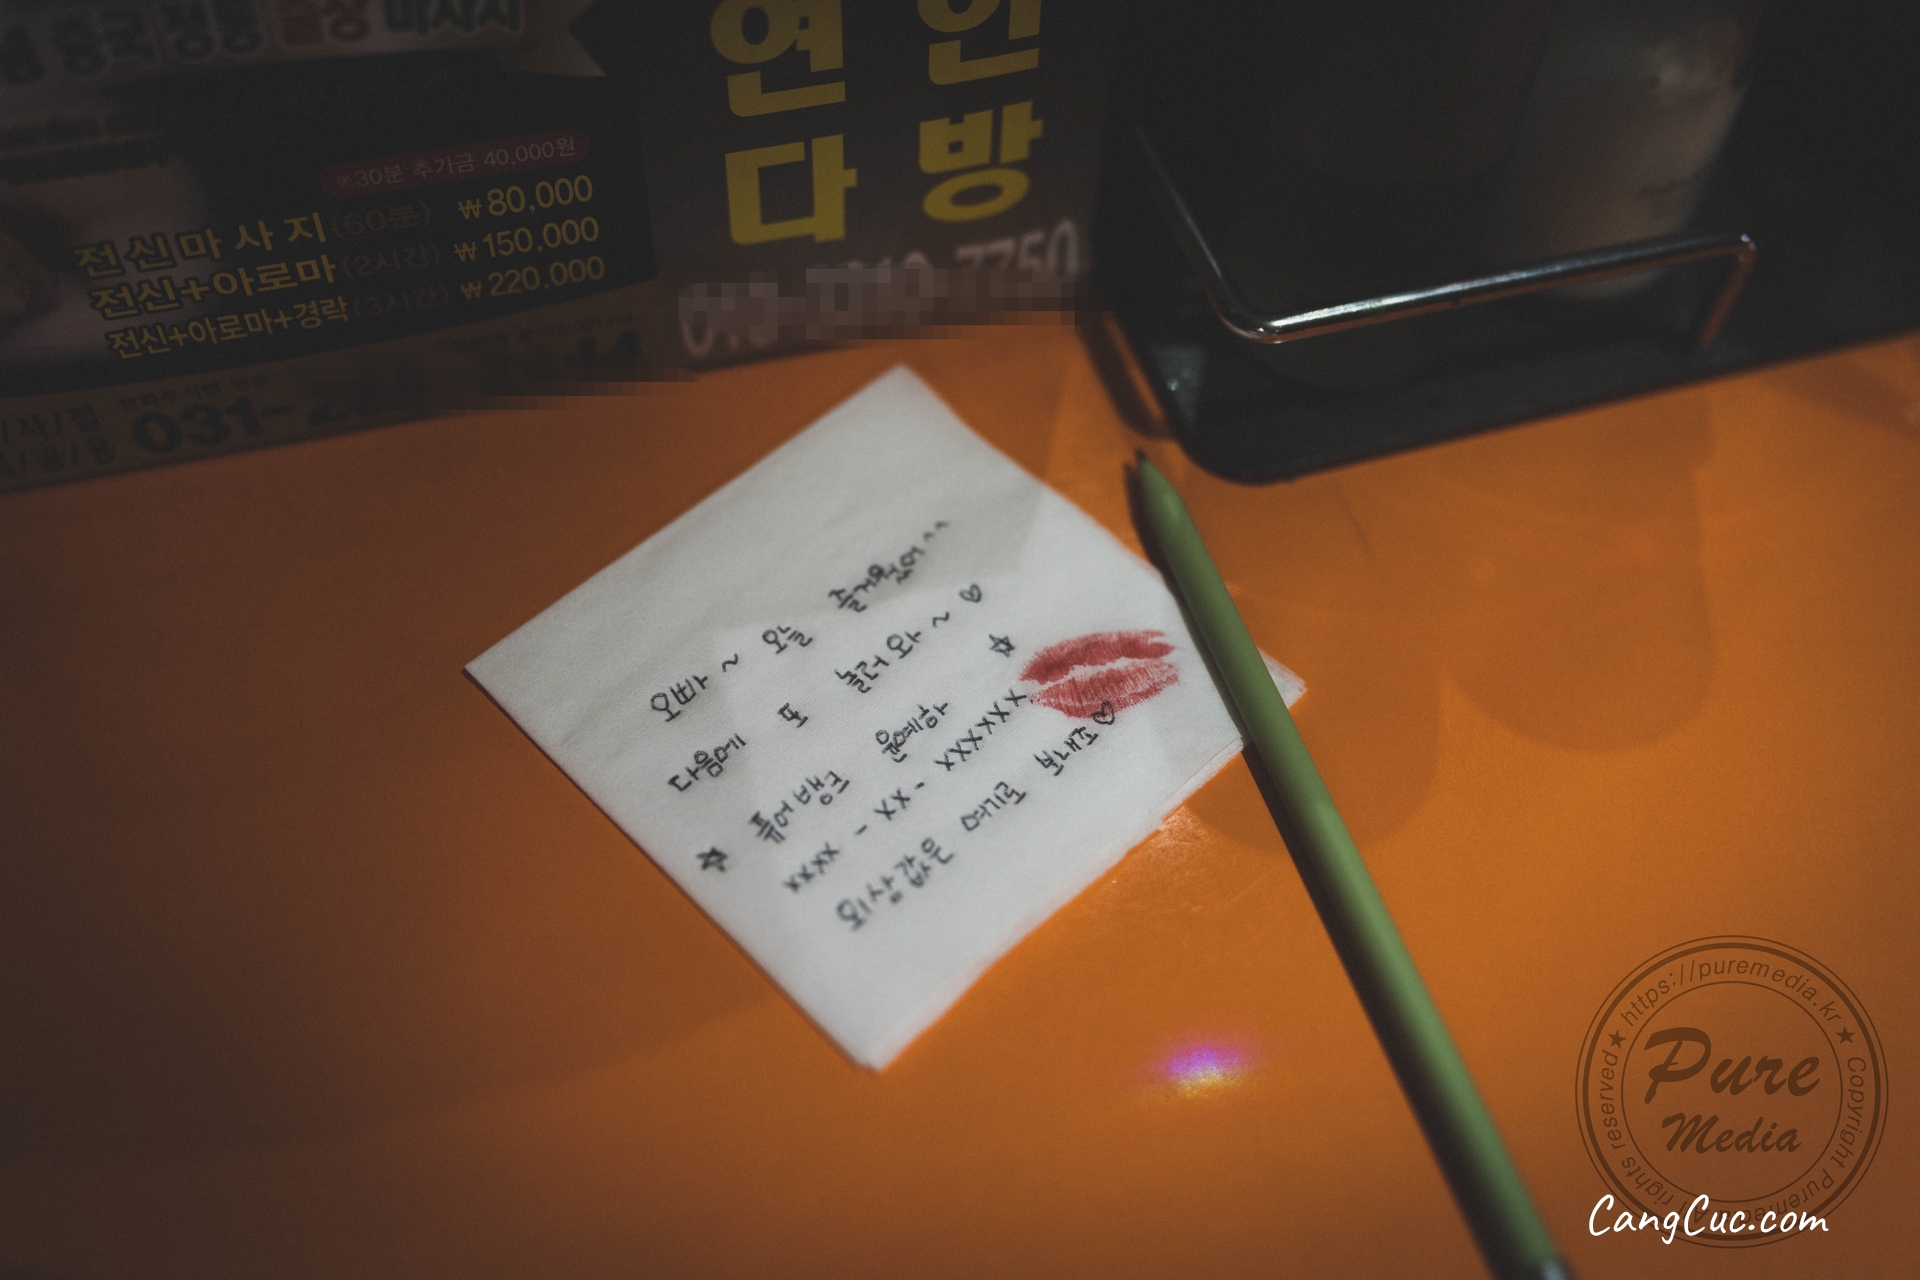 중국 정통 출장 마사지
※30분 추가금 40,000원
전신마사지(60분) ₩80,000
전신+아로마(2시간) ₩150,000
전신+아로마+경락(3시간) ₩220,000
031-
연인
다방
오빠~ 오늘 즐거웠어^^
다음에 또 놀러와~♡
☆ 퓨어뱅크 윤예하 ☆
xxxx - xx - xxxxxxx
외상값은 여기로 보내죠♡
https://puremedia.kr ★ Copyright Puremedia All rights reserved ★
Pure
Media
CangCuc.com